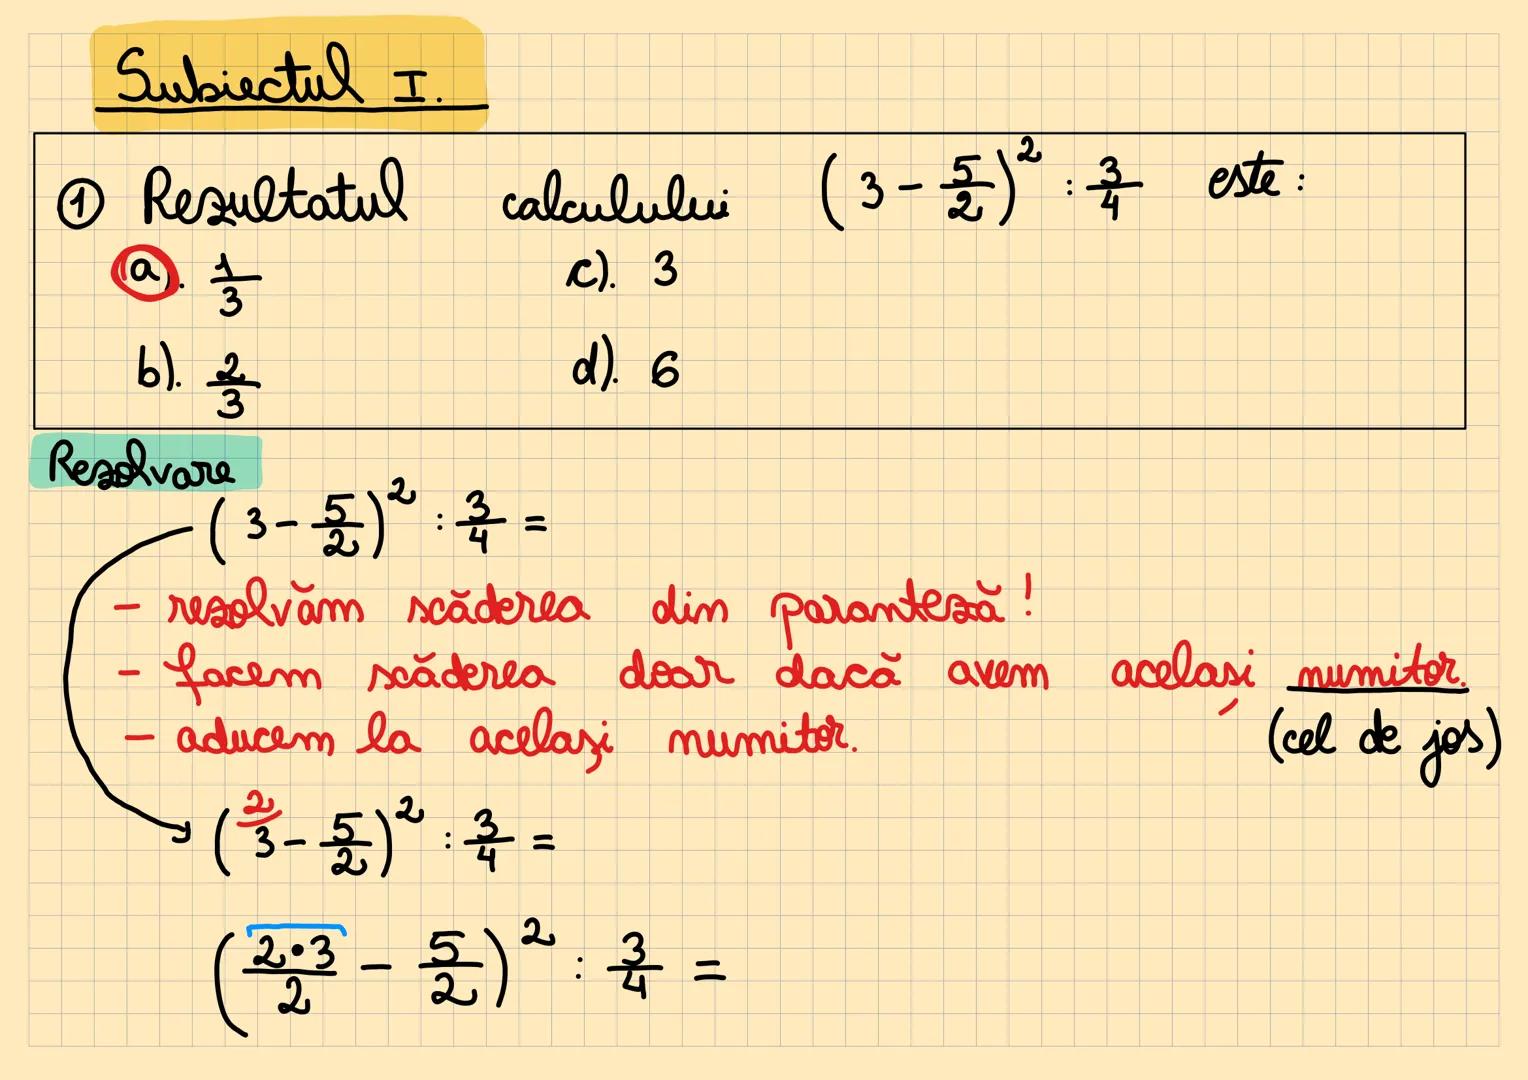 Subiectul I.
① Rezultatul calculului (3 - 5/2)² : 3/4 este:
a). 1/3 c). 3
b). 2/3 d). 6
Rezolvare
(3 - 5/2)² : 3/4 =
- rezolvăm scăderea din paranteză!
- facem scăderea doar dacă avem același numitor.
(cel de jos)
- aducem la același numitor.
(²⁾3 - 5/2)² : 3/4 =
(2·3/2 - 5/2)² : 3/4 =